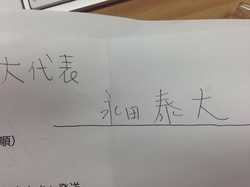 大代表
永田 泰大
順）
発送